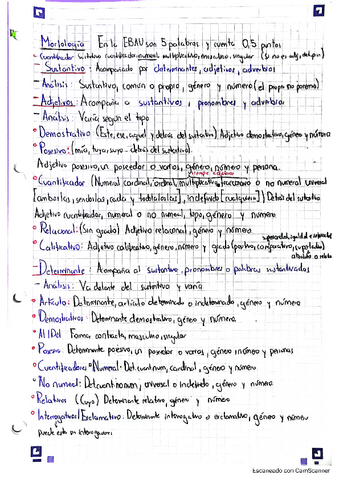 Morfología En la EBAU son 5 palabras y cuenta 0,5 puntos
- Sustantivo: Acompañado por determinantes, adjetivos, adverbios
- Análisis: Sustantivo, común o propio, género y número (el propio no ponemos)
Adjetivos: Acompaña a sustantivos, pronombres y adverbios
- Análisis: Varía según el tipo
Demostrativo (Este, ese, aquel y detrás del sustantivo) Adjetivo demostrativo, género y número
Posesivo: (mío, tuyo, suyo - detrás del sustantivo).
Adjetivo posesivo, un poseedor o varios, género, número y persona.
Cuantificador (Numeral cardinal, ordinal, multiplicativo, o no numeral universal
[ambos/as, sendos/as, cada y todo/a/os/as], indefinido [cualquiera]] Detrás del sustantivo
Adjetivo cuantificador, numeral o no numeral, tipo, género y número
Relacional: (Sin grado) Adjetivo relacional, género y número.
Calificativo: Adjetivo calificativo, género, número y grado (positivo, comparativo, superlativo)
- Determinante: Acompaña al sustantivo, pronombres o palabras sustantivadas
- Análisis: Va delante del sustantivo y varía
Artículo: Determinante, artículo determinado o indeterminado, género y número
Demostrativos: Determinante demostrativo, género y número.
Al/Del Forma contracta, masculino, singular
Posesivo: Determinante posesivo, un poseedor o varios, género número y persona
Cuantificadores: Numeral: cardinal, género y número
No numeral: universal o indefinido, género y número.
Relativos (Cuyo) Determinante relativo, género y número
Interrogativo/Exclamativo: Determinante interrogativo o exclamativo, género y número
Escaneado con CamScanner